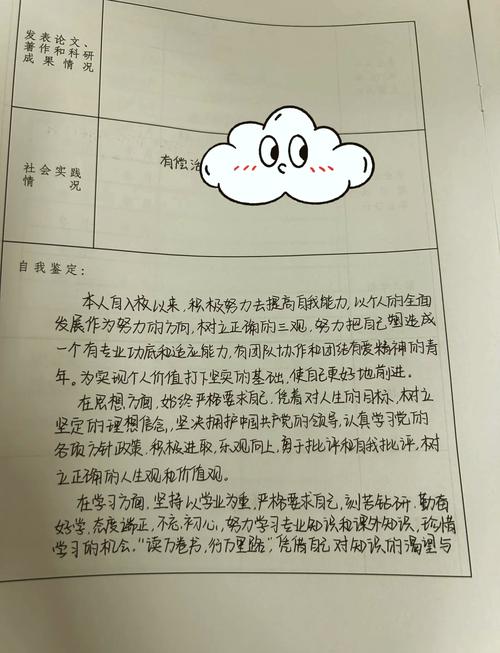 发表论文、
著作和科研
成果情况
社会实践
情况
有偿
自我鉴定:
本人自入校以来,积极努力去提高自我能力,以个人的全面
发展作为努力的方向,树立正确的三观,努力把自己塑造成
一个有专业功底和适应能力,有团队协作和团结有爱精神的青
年。为实现个人价值打下坚实的基础,使自己更好地前进。
在思想方面,始终严格要求自己,凭着对人生的目标,树立
坚定的理想信念,坚决拥护中国共产党的领导,认真学习党的
各项方针政策,积极进取,乐观向上,勇于批评和自我批评,树
立正确的人生观和价值观。
在学习方面,坚持以学业为重,严格要求自己,刻苦钻研,勤奋
好学,态度端正,不忘初心,努力学习专业知识和课外知识,珍惜
学习的机会。“读万卷书,行万里路”,凭借自己对知识的渴望与